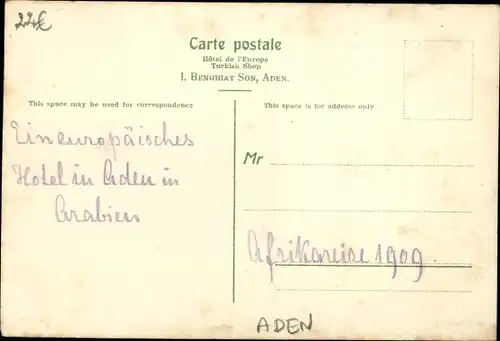 22€
Carte postale
Hôtel de l'Europe
Turkish Shop
I. BENGHIAT SON, ADEN.
This space may be used for correspondence
This space is for address only
Ein europäisches
Hotel in Aden in
Arabien
Mr
Afrikareise 1909
ADEN